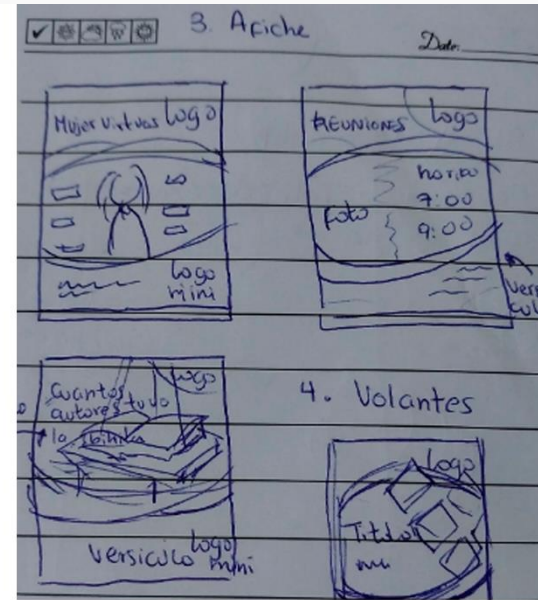 3. Afiche
Date:
Mujer virtuos logo
logo
mini
REUNIONES logo
horario
7:00
foto
9:00
Versi
cul
logo
Cuantos
autores tuvo
la biblia
versiculo logo
mini
4. Volantes
logo
Titulo